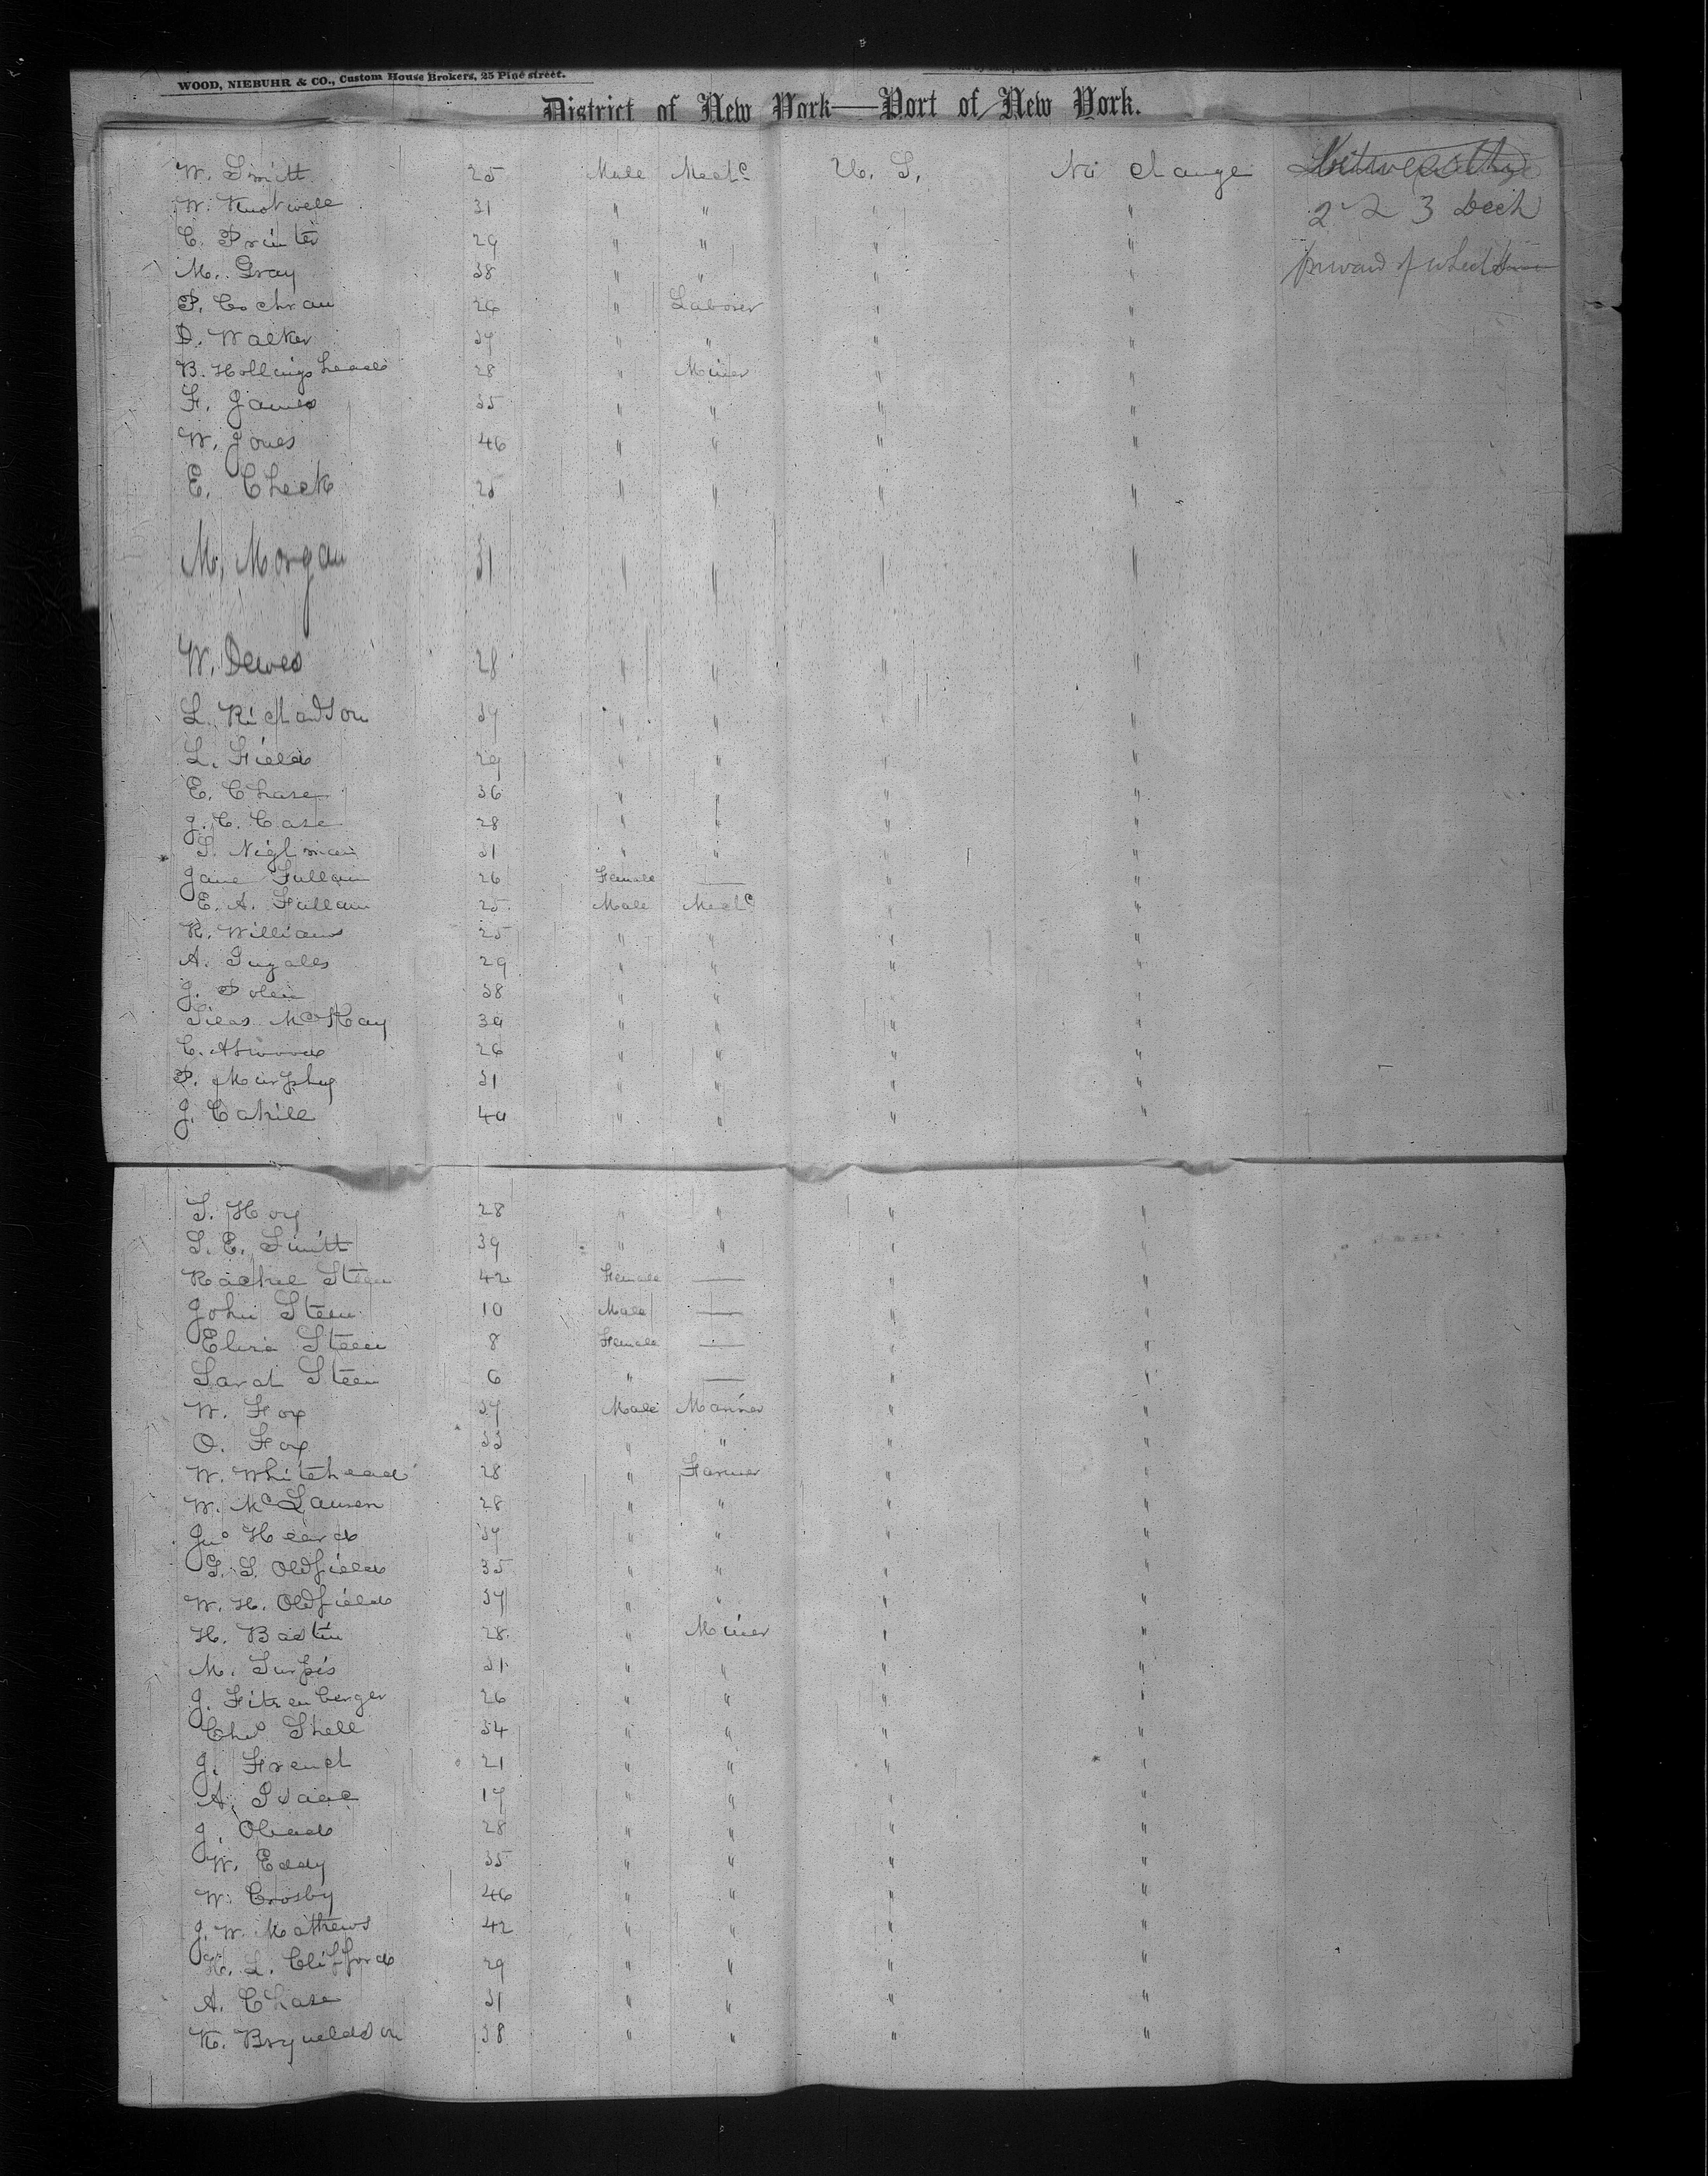 WOOD, NIEBUHR & CO., Custom House Brokers, 25 Pine street.
District of New York—Port of New York.
W. Smith 25 Male Mechc U. S. No change
W. Knotwell 31 " " " " 2d & 3 Deck
C. Printer 29 " " " " forward of wheel
M. Gray 38 " " " "
P. Cochran 26 " Laborer " "
D. Walker 37 " " " "
B. Hollingshead 28 " Miner " "
F. James 35 " " " "
W. Jones 46 " " " "
E. Cheek 25 " " " "
M. Morgan 31 " " " "
W. Dewes 28 " " " "
L. Richardson 37 " " " "
L. Field 29 " " " "
E. Chase 36 " " " "
J. C. Case 28 " " " "
S. Nighman 31 " " " "
Jane Fullam 26 Female — " "
E. A. Fullam 25 Male Mechc " "
R. Williams 25 " " " "
A. Ingalls 29 " " " "
J. Polin 38 " " " "
Silas McKay 39 " " " "
C. Atwood 26 " " " "
P. Murphy 31 " " " "
J. Cahill 40 " " " "
S. Hoy 28 " " " "
S. E. Smith 39 " " " "
Rachel Steen 42 Female — " "
John Steen 10 Male — " "
Eliza Steen 8 Female — " "
Sarah Steen 6 " — " "
W. Fox 37 Male Mariner " "
O. Fox 33 " " " "
W. Whitehead 28 " Farmer " "
W. McLauren 28 " " " "
Jno Heard 37 " " " "
G. S. Oldfield 35 " " " "
W. H. Oldfield 37 " " " "
H. Bastin 28 " Miner " "
M. Turpis 31 " " " "
J. Fitzenberger 26 " " " "
Chas Shell 34 " " " "
J. French 21 " " " "
A. Isaac 17 " " " "
J. Olead 28 " " " "
W. Eddy 35 " " " "
W. Crosby 46 " " " "
J. W. Mathews 42 " " " "
H. L. Clifford 29 " " " "
A. Chase 31 " " " "
K. Bryneldson 38 " " " "